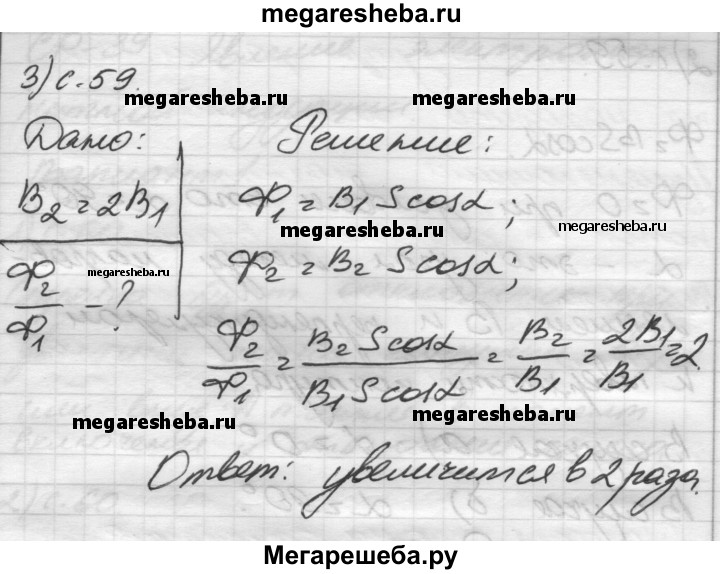 megaresheba.ru
3) с. 59.
megaresheba.ru
megaresheba.ru
Дано:
Решение:
B₂ = 2B₁
Ф₁ = B₁ S cosα;
megaresheba.ru
megaresheba.ru
Ф₂/Ф₁ - ?
megaresheba.ru
Ф₂ = B₂ S cosα;
Ф₂/Ф₁ = B₂ S cosα / B₁ S cosα = B₂/B₁ = 2B₁/B₁ = 2.
megaresheba.ru
megaresheba.ru
Ответ: увеличится в 2 раза.
Мегарешеба.ру